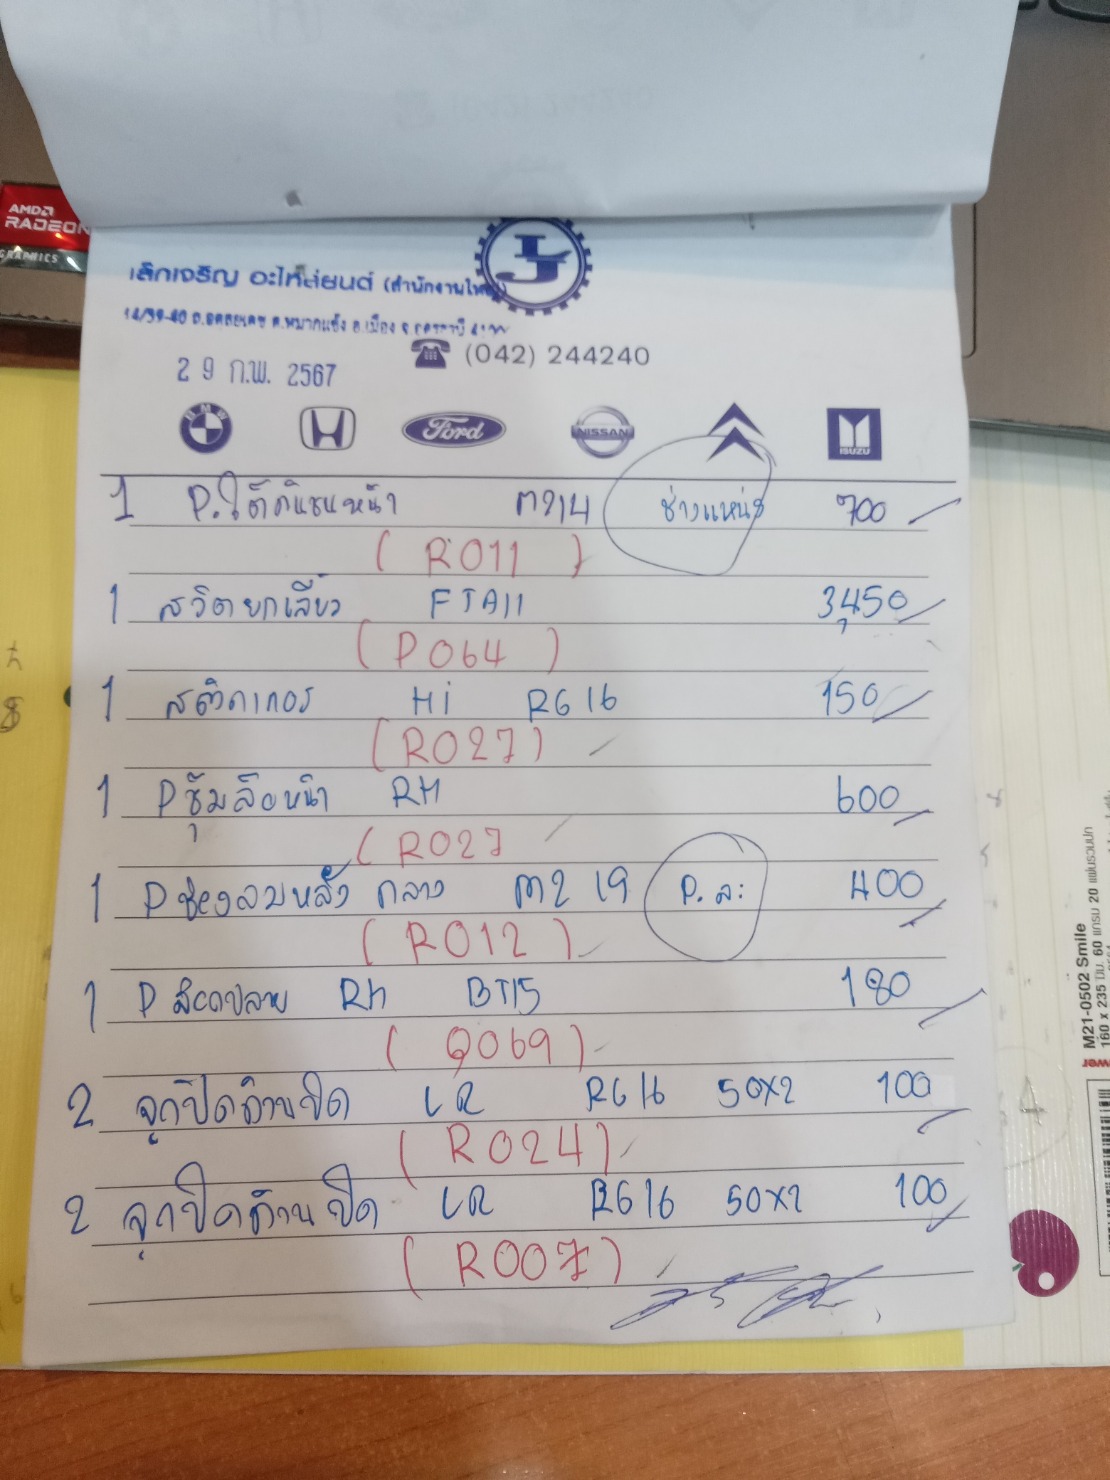 AMD
RADEON
GRAPHICS
LJ
เล็กเจริญ อะไหล่ยนต์ (สำนักงานใหญ่)
14/39-40 ต.หมากแข้ง อ.เมือง
(042) 244240
29 ก.พ. 2567
BMW
Ford
NISSAN
ISUZU
1 P. หน้า ช่างแหน่ง 700
( R011 )
1 สวิตยกเลี้ยว FJA11 3,450
( P064 )
1 สติกเกอร Hi RG16 150
( R027 )
1 P ซุ้มล้อหน้า RH 600
( R027
1 Pช่องลมหลัง กลาง M219 P.ล: 400
( R012 )
1 P RH BT15 180
( Q069 )
2 จุกปิดด้านปิด LR RG16 50x2 100
( R024 )
2 จุกปิดด้านปิด LR RG16 50x2 100
( R007 )
M21-0502 Smile
160 x 235 มม. 60 แกรม 20 แผ่น
4